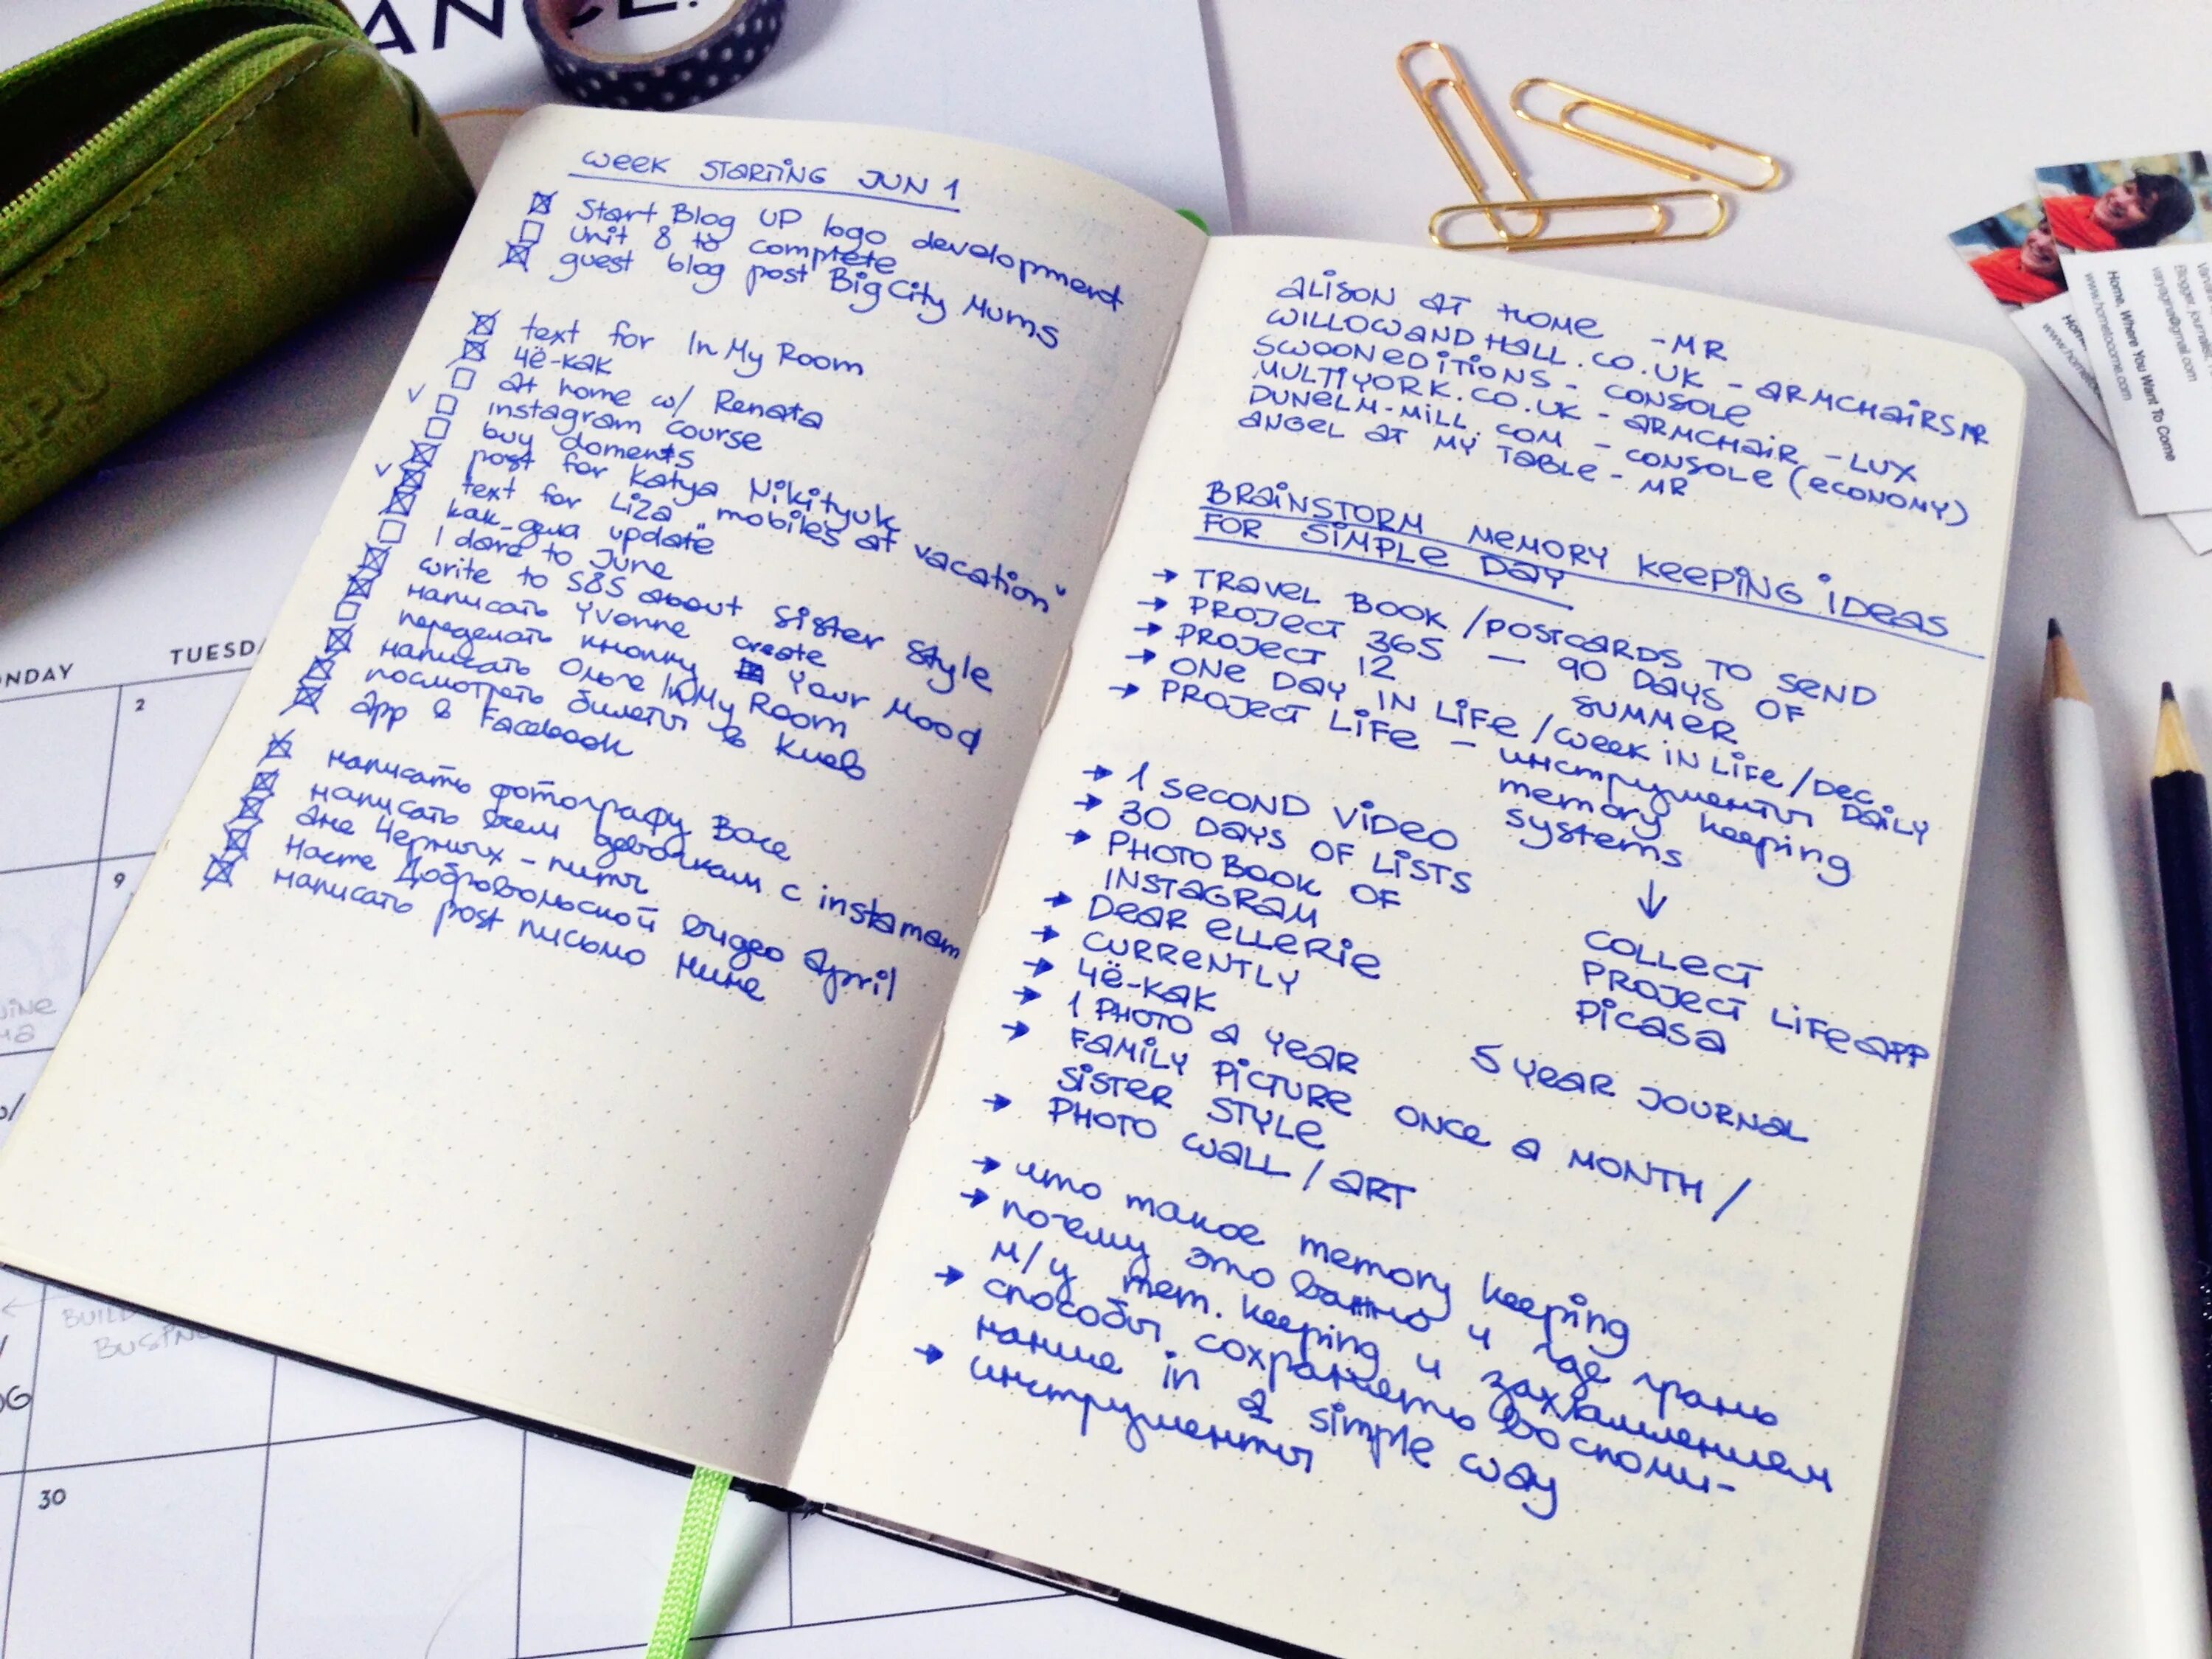 WEEK STARTING JUN 1
Start Blog UP logo development
unit 8 to complete
guest blog post BigCity Mums
text for In My Room
чё-как
at home w/ Renata
instagram course
buy doments
post for Katya Nikityuk
text for Liza "mobiles at vacation"
как_дела update
I dare to June
write to S&S about Sister Style
написать Yvonne create
переделать кнопку Your Mood
написать Ольге In My Room
посмотреть билеты в Киев
app в Facebook
написать фотографу Васе
написать всем девочкам с instamam
Ане Черных - питч
Насте Добровольской видео April
написать post письмо Нине
ALISON AT HOME - MR
WILLOWANDHALL.CO.UK - ARMCHAIRS MR
SWOONEDITIONS - CONSOLE
MULTIYORK.CO.UK - ARMCHAIR - LUX
DUNELM-MILL.COM - CONSOLE (ECONOMY)
ANGEL AT MY TABLE - MR
BRAINSTORM MEMORY KEEPING IDEAS
FOR SIMPLE DAY
→ TRAVEL BOOK / POSTCARDS TO SEND
→ PROJECT 365 — 90 DAYS OF
SUMMER
→ PROJECT 12
→ ONE DAY IN LIFE / WEEK IN LIFE / DEC. DAILY
→ PROJECT LIFE - инструменты
memory keeping
systems
↓
COLLECT
PROJECT LIFE APP
PICASA
→ 1 SECOND VIDEO
→ 30 DAYS OF LISTS
→ PHOTOBOOK OF
INSTAGRAM
→ DEAR ELLERIE
→ CURRENTLY
→ ЧЁ-КАК
→ 1 PHOTO A YEAR
5 YEAR JOURNAL
→ FAMILY PICTURE ONCE A MONTH /
SISTER STYLE
→ PHOTO WALL / ART
→ что такое memory keeping
→ почему это важно и где грань
м/у mem. keeping и захламлением
→ способы сохранять воспоми-
нание in a simple way
→ инструменты
MONDAY
TUESDAY
2
9
30
BUILD
Home. Where You Want To Come
www.hometocome.com